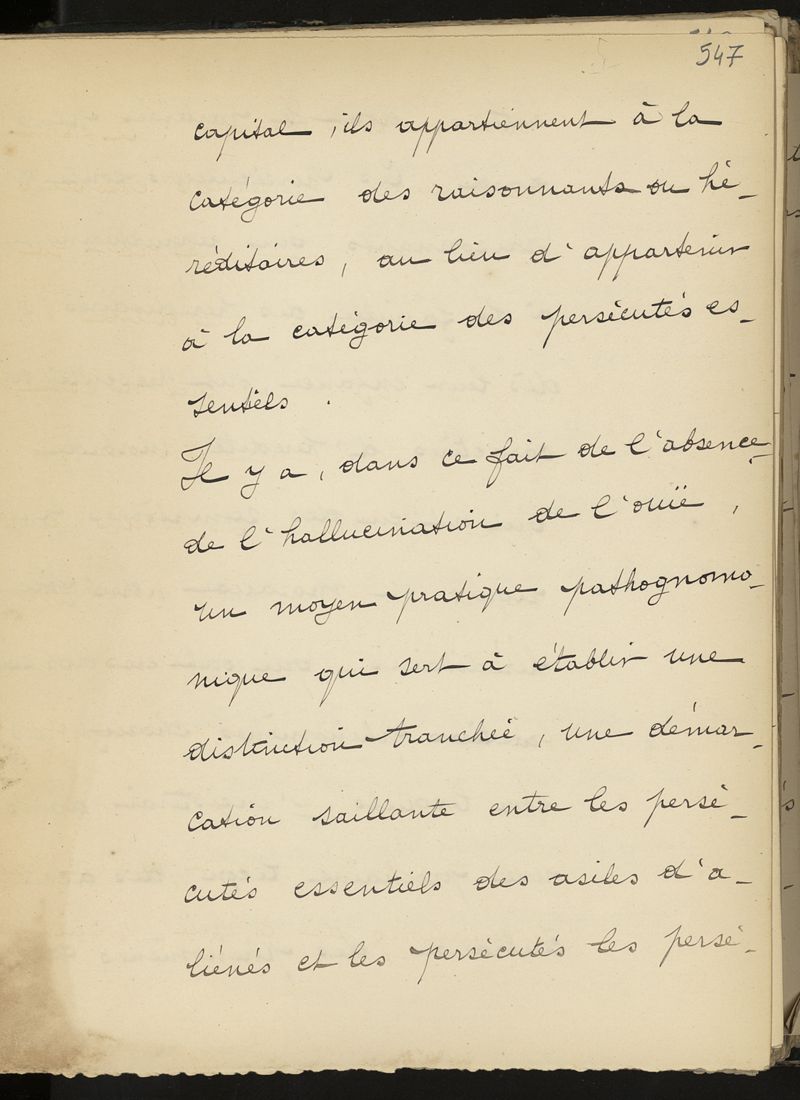 547
capital, ils appartiennent à la
catégorie des raisonnants ou hé-
réditaires, au lieu d'appartenir
à la catégorie des persécutés es-
sentiels.
Il y a, dans ce fait de l'absence
de l'hallucination de l'ouïe,
un moyen pratique pathognomo-
nique qui sert à établir une
distinction tranchée, une démar-
cation saillante entre les persé-
cutés essentiels des asiles d'a-
liénés et les persécutés les persé-